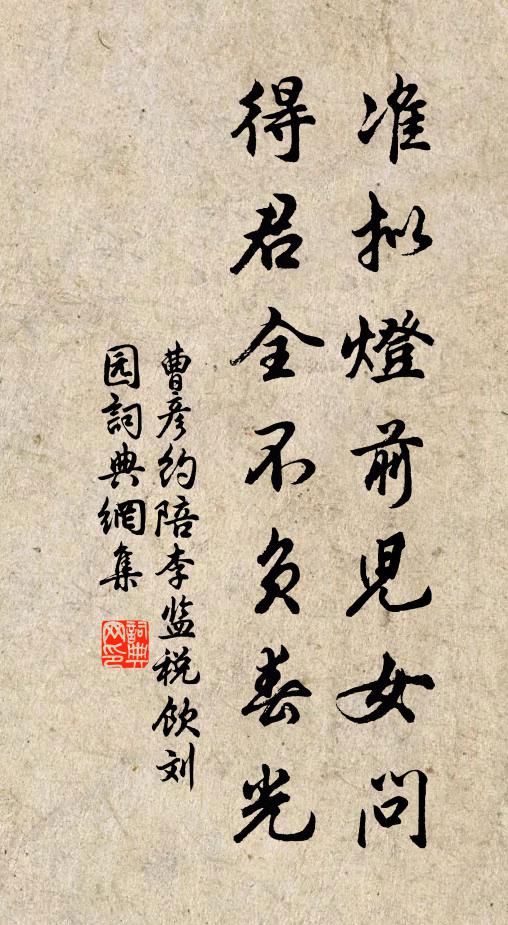 准拟燈前児女问
得君全不负春光
曹彦约陪李监税饮刘
园詞典網集
詞典网印